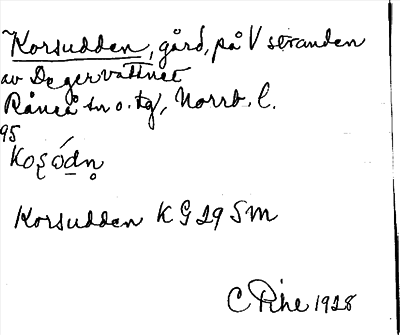 Korsudden, gård, på V stranden
av Degervattnet
Råneå sn o. tg, Norrb. l.
95
Korsudden KG 29 SM
C Rhe 1928